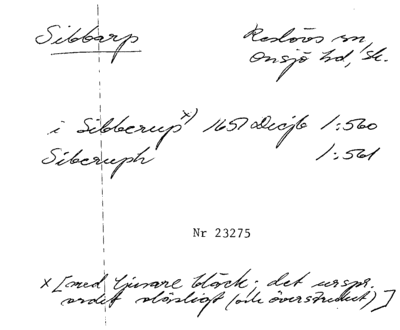 Sibbarp
Reslövs sn,
Onsjö hd, Sk.
i Sibberup x) 1651 Decjb 1:560
Siberuph 1:561
Nr 23275
x [med ljusare bläck; det urspr.
ordet oläsligt (ofl. överstruket)]